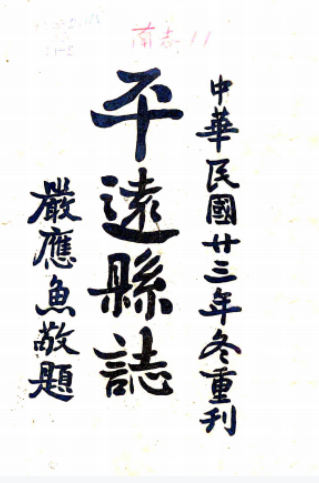 南志11
中華民國廿三年冬重刋
平遠縣誌
嚴應魚敬題